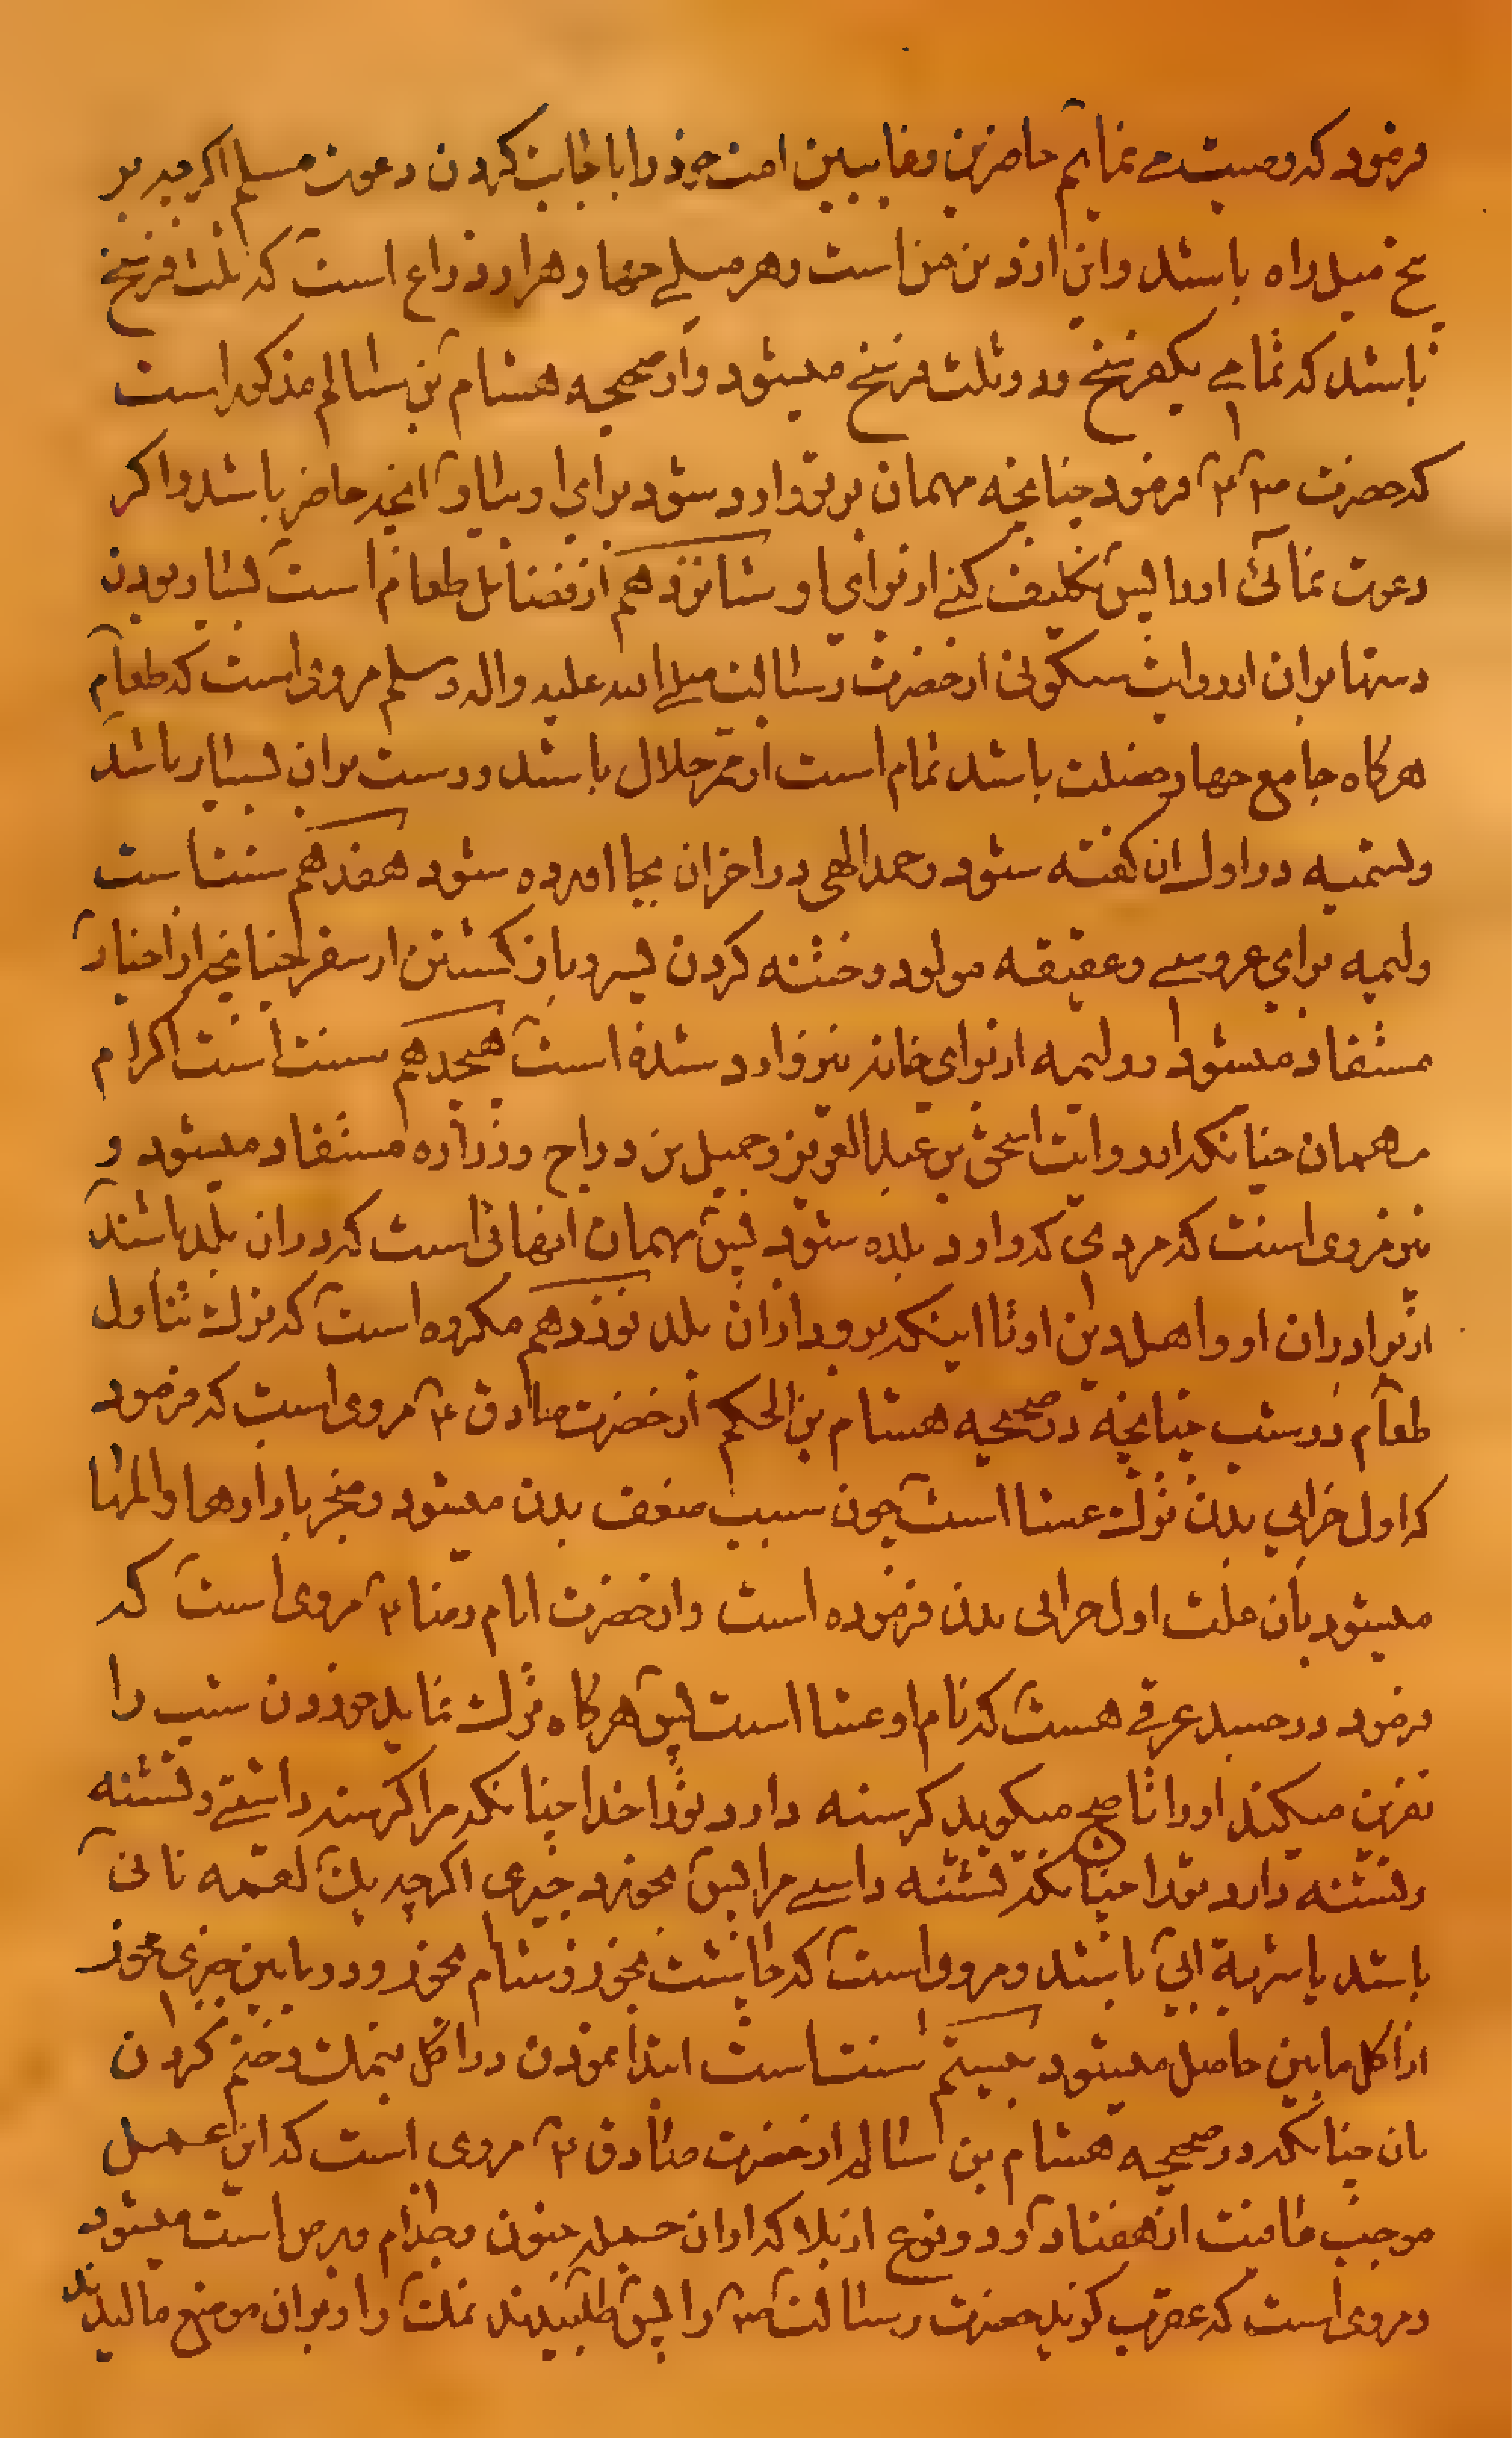 فرمود که وصیت مے نمایم حاضرین وغایبین امت خود را باجابت کردن دعوت مسلم اکرچه بر
پنج میل راه باشد واین از دین من است وهر میلے چهار هزار ذراع است که ثلث فرسخ
باشد که تمامے یکفرسخ ودو ثلث فرسخ میشود واز صحیحه هشام بن سالم مذکور است
که حضرت ص۴ فرمود چنانچه مهمان بر تو وارد شود برای او بیاور انچه حاضر باشد واکر
دعوت نمائی اورا پس تکلیف کنے از برای او شانزدهم از فضائل طعام است بسیار بودن
دستها بران از روایت سکونی از حضرت رسالت صلے الله علیه واله وسلم مروی است که طعام
هرکاه جامع چهار خصلت باشد تمام است از ممر حلال باشد ودست بران بسیار باشد
وتسمیه در اول ان کفته شود وحمد الهی در اخر ان بجا اورده شود هفدهم سنت است
ولیمه برای عروسے وعقیقه مولود وختنه کردن پسر وباز کشتن از سفر چنانچه از اخبار
مستفاد میشود ودر ولیمه از برای خانه نیز وارد شده است هیجدهم سنت است اکرام
مهمان چنانکه از روایت اسحق بن عبد العزیز وجمیل بن دراج وزراره مستفاد میشود و
نیز مروی است که مردی که وارد بلده شود پس مهمان انهائی است که دران بلد باشند
از برادران او واهل دین او تا اینکه برود ازان بلد نوزدهم مکروه است که ترك تناول
طعام در شب چنانچه در صحیحه هشام بن الحکم از حضرت صادق ۴ مروی است که فرمود
که اول خرابی بدن ترك عشا است چون سبب ضعف بدن میشود ومنجر بازارها والمها
میشود بان علت اول خرابی بدن فرموده است واز حضرت امام رضا ۴ مروی است که
فرمود در جسد عرقے هست که نام او عشا است پس هرکاه ترك نماید خوردن شب را
نفرین میکند اورا تا صبح میکوید کرسنه دارد تورا خدا چنانکه مرا کرسنه داشتے وتشنه
وتشنه دارد تورا چنانکه تشنه داشے مرا پس بخورد چیزی اکرچه یك لقمه نانی
باشد یا شربة ابی باشد ومروی است که چاشت بخور وشام بخور ودر مابین چیزی مخور
از اکل مابین حاصل میشود بیستم سنت است ابتدا نمودن در اکل بنمك وختم کردن
بان چنانکه در صحیحه هشام بن سالم از حضرت صادق ۴ مروی است که این عمل
موجب عافیت از هفتاد ودو نوع از بلا که ازان جمله جنون وجذام وبرص است میشود
ومروی است که عقرب کزید حضرت رسالت ص را پس طلبیدند نمك را وبران موضع مالیدند